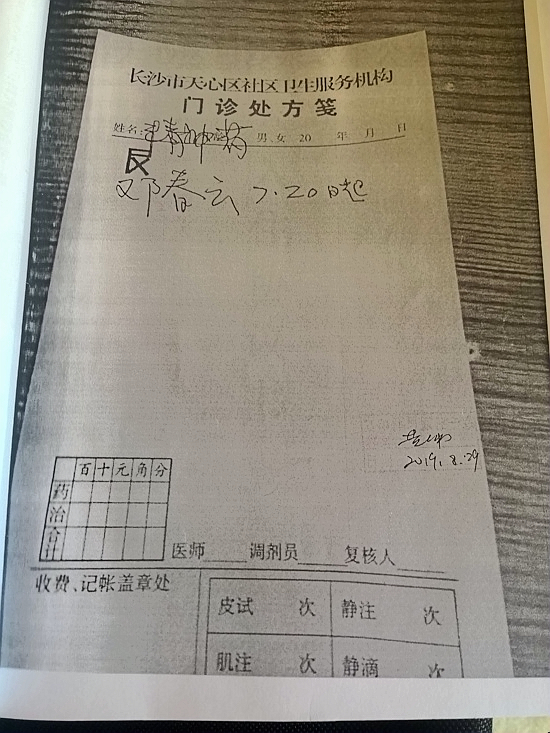 长沙市天心区社区卫生服务机构
门诊处方笺
姓名: 男、女 20 年 月 日
邓春云 7.20日起
2019.8.29
百 十 元 角 分
药
治
合计
医师 调剂员 复核人
收费、记帐盖章处
皮试 次 静注 次
肌注 次 静滴 次